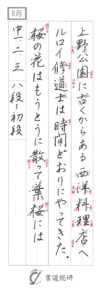 8月
上野公園に古くからある西洋料理店へ
ルロイ修道士は時間どおりにやってきた。
桜の花はもうとうに散って葉桜には
中一・二・三 八段〜初段
書道総研